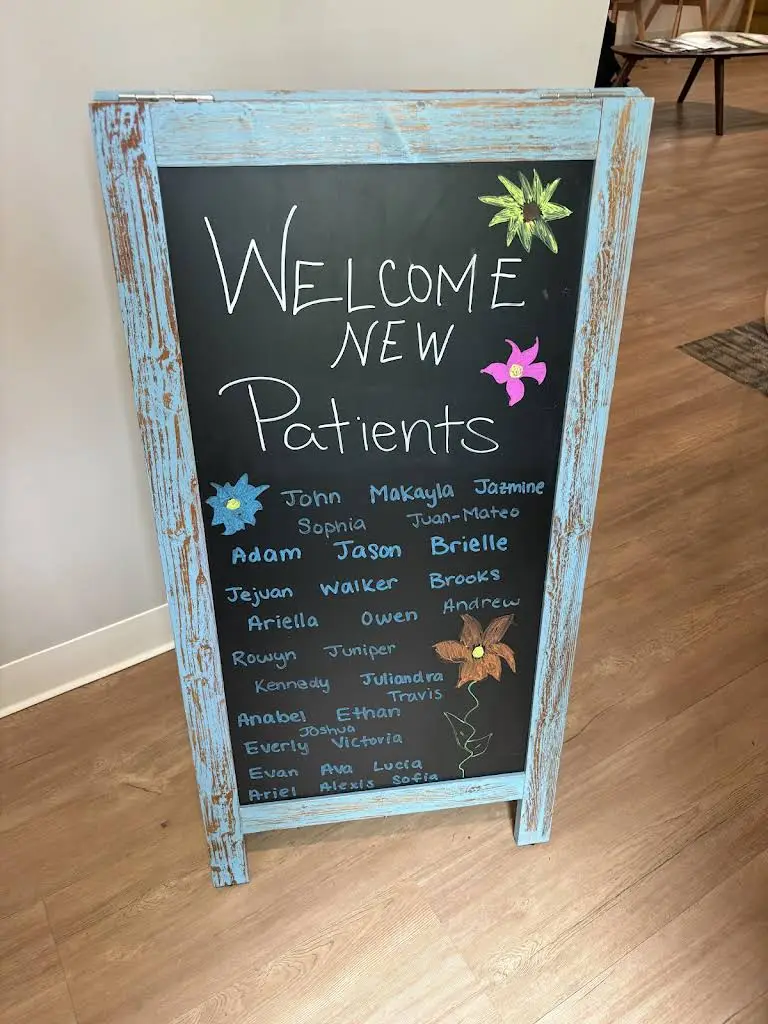 WELCOME
NEW
Patients
John Makayla Jazmine
Sophia Juan-Mateo
Adam Jason Brielle
Jejuan Walker Brooks
Ariella Owen Andrew
Rowyn Juniper
Kennedy Juliandra
Travis
Anabel Ethan
Joshua
Everly Victoria
Evan Ava Lucia
Ariel Alexis Sofia